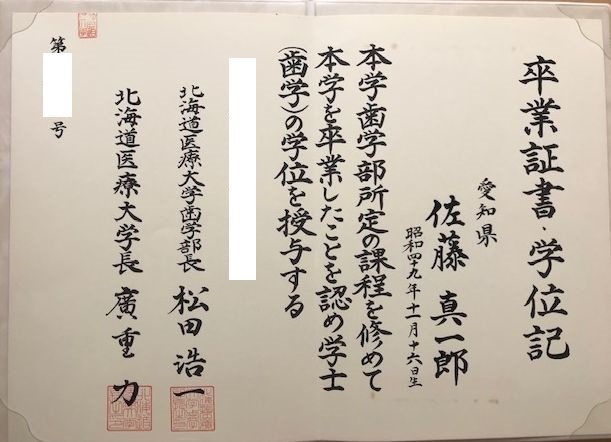 卒業証書・学位記
愛知県
佐藤真一郎
昭和四十九年十一月十六日生
本学歯学部所定の課程を修めて
本学を卒業したことを認め学士
(歯学)の学位を授与する
北海道医療大学歯学部長 松田浩一
北海道医療大学長 廣重力
第 号